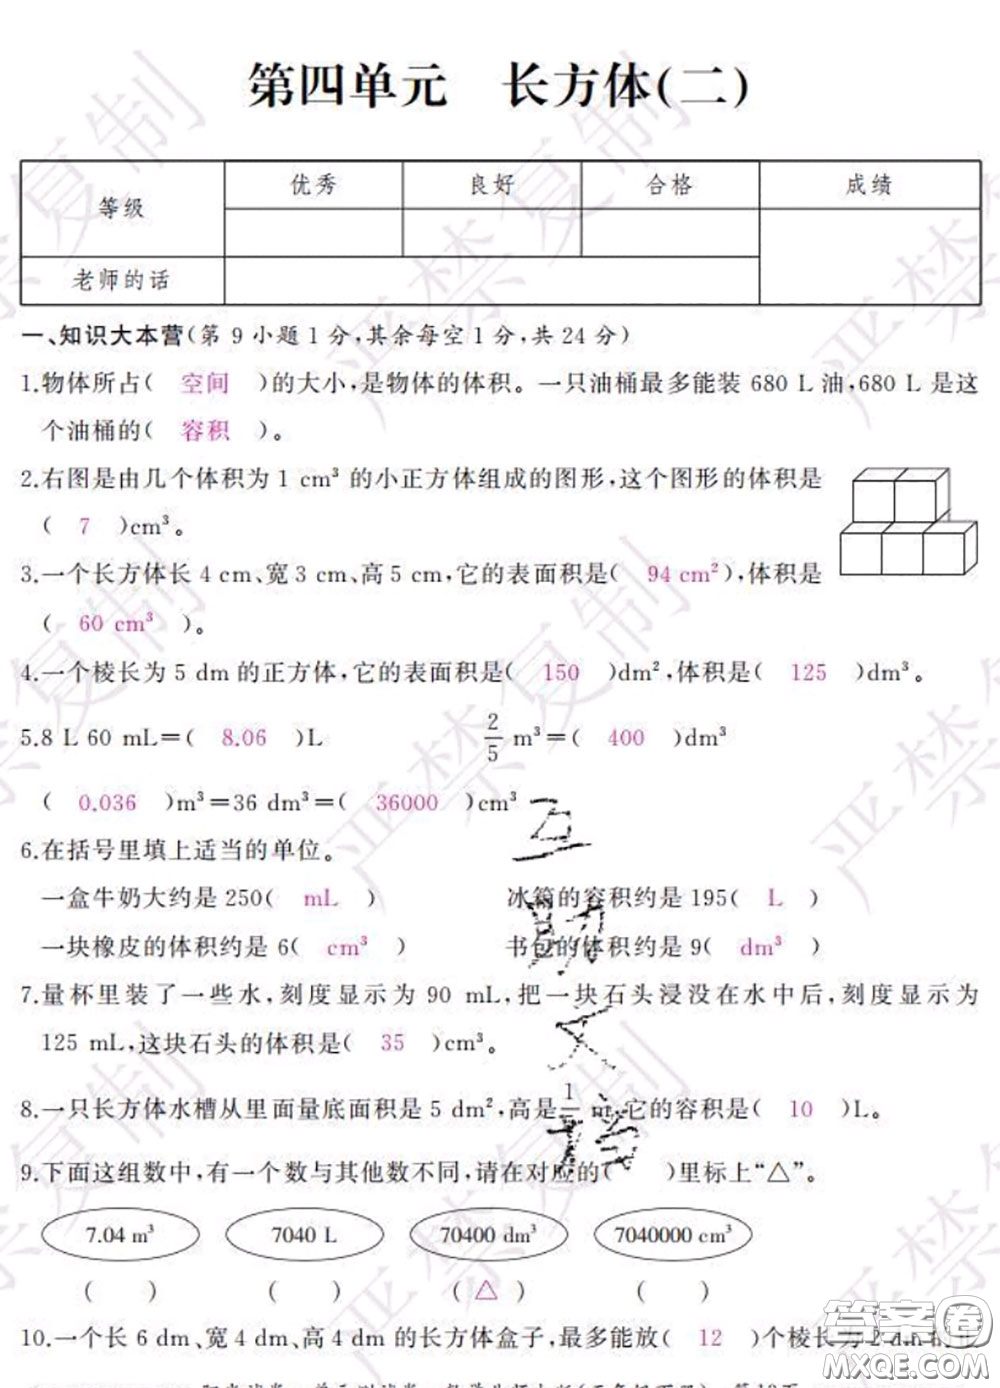 第四单元 长方体(二)
等级 优秀 良好 合格 成绩
老师的话
一、知识大本营(第 9 小题 1 分,其余每空 1 分,共 24 分)
1.物体所占( 空间 )的大小,是物体的体积。一只油桶最多能装 680 L 油,680 L 是这
个油桶的( 容积 )。
2.右图是由几个体积为 1 cm³ 的小正方体组成的图形,这个图形的体积是
( 7 )cm³。
3.一个长方体长 4 cm、宽 3 cm、高 5 cm,它的表面积是( 94 cm²),体积是
( 60 cm³ )。
4.一个棱长为 5 dm 的正方体,它的表面积是( 150 )dm²,体积是( 125 )dm³。
5.8 L 60 mL=( 8.06 )L 2/5 m³=( 400 )dm³
( 0.036 )m³=36 dm³=( 36000 )cm³
6.在括号里填上适当的单位。
一盒牛奶大约是 250( mL ) 冰箱的容积约是 195( L )
一块橡皮的体积约是 6( cm³ ) 书包的体积约是 9( dm³ )
7.量杯里装了一些水,刻度显示为 90 mL,把一块石头浸没在水中后,刻度显示为
125 mL,这块石头的体积是( 35 )cm³。
8.一只长方体水槽从里面量底面积是 5 dm²,高是 m,它的容积是( 10 )L。
9.下面这组数中,有一个数与其他数不同,请在对应的( )里标上“△”。
7.04 m³ 7040 L 70400 dm³ 7040000 cm³
( ) ( ) ( △ ) ( )
10.一个长 6 dm、宽 4 dm、高 4 dm 的长方体盒子,最多能放( 12 )个棱长为 2 dm 的正
严禁复制
答案圈
MXQE.COM